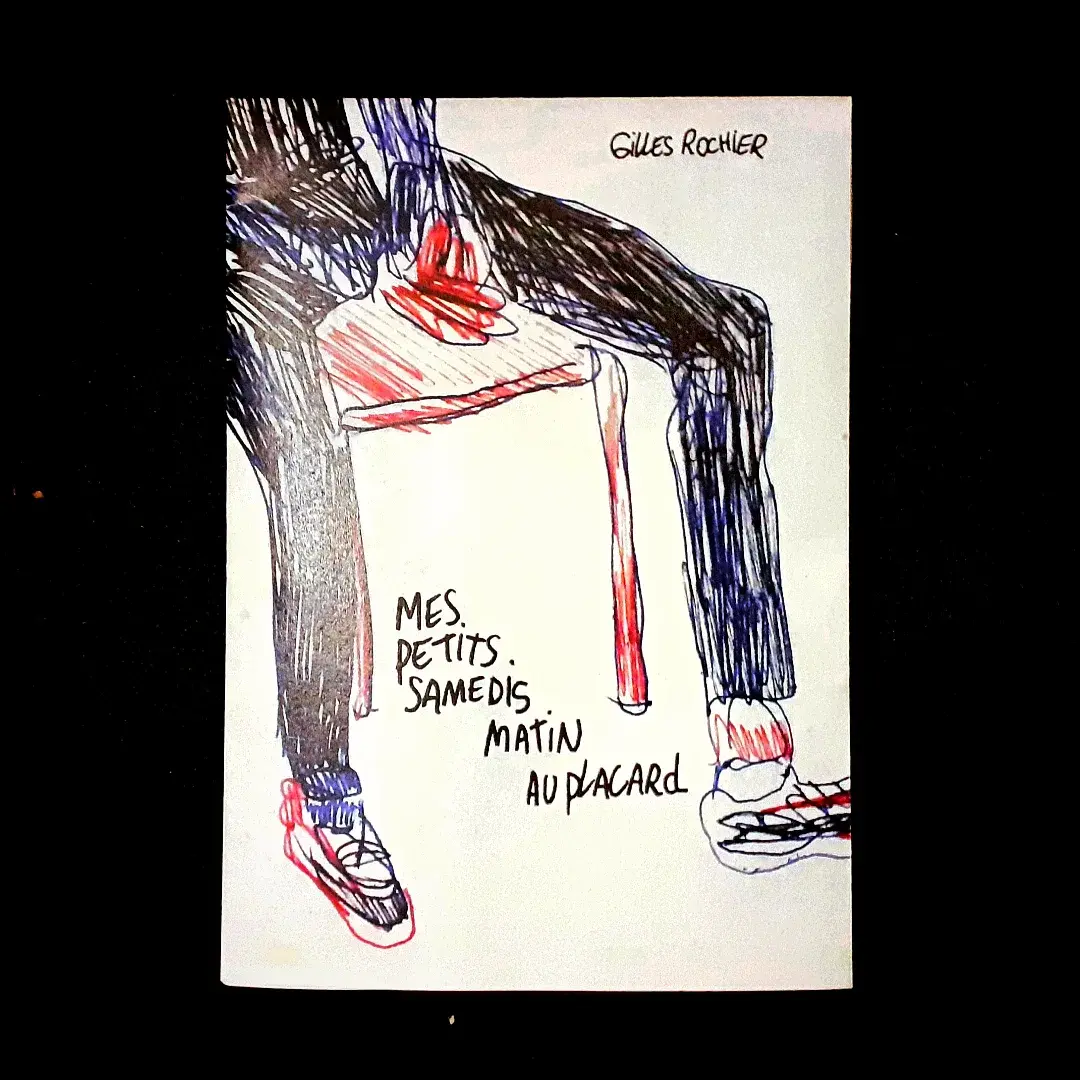 GILLES ROCHIER
MES.
PETITS.
SAMEDIS
MATIN
AU PLACARD